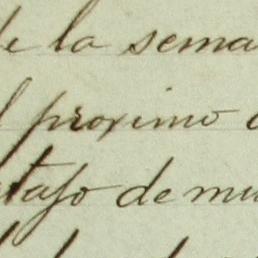 de la sema
l proximo
tafo de mu